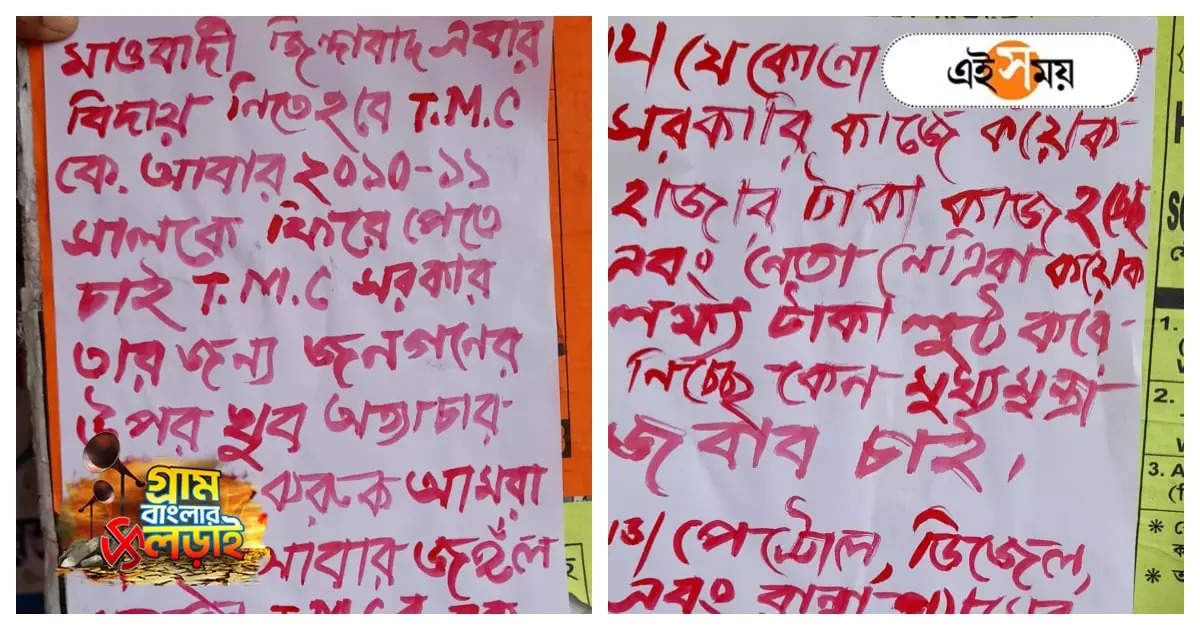 মাওবাদী জিন্দাবাদ এবার
বিদায় নিতে হবে T.M.C
কে. আবার ২০১০-১১
সালকে ফিরে পেতে
চাই T.M.C সরকার
তার জন্য জনগনের
উপর খুব অত্যাচার
করুক আমরা
আবার জঙ্গল
T.M.C
গ্রাম
বাংলার
লড়াই
এই সময়
যে কোনো
সরকারি কাজে কয়েক
হাজার টাকা কাজ হচ্ছে
এবং নেতা নেত্রীরা কয়েক
লক্ষ্য টাকা লুট করে
নিচ্ছে কেন মুখ্যমন্ত্রী
জবাব চাই।
পেট্রোল, ডিজেল,
এবং রান্না গ্যাসের
1.
2.
3. A